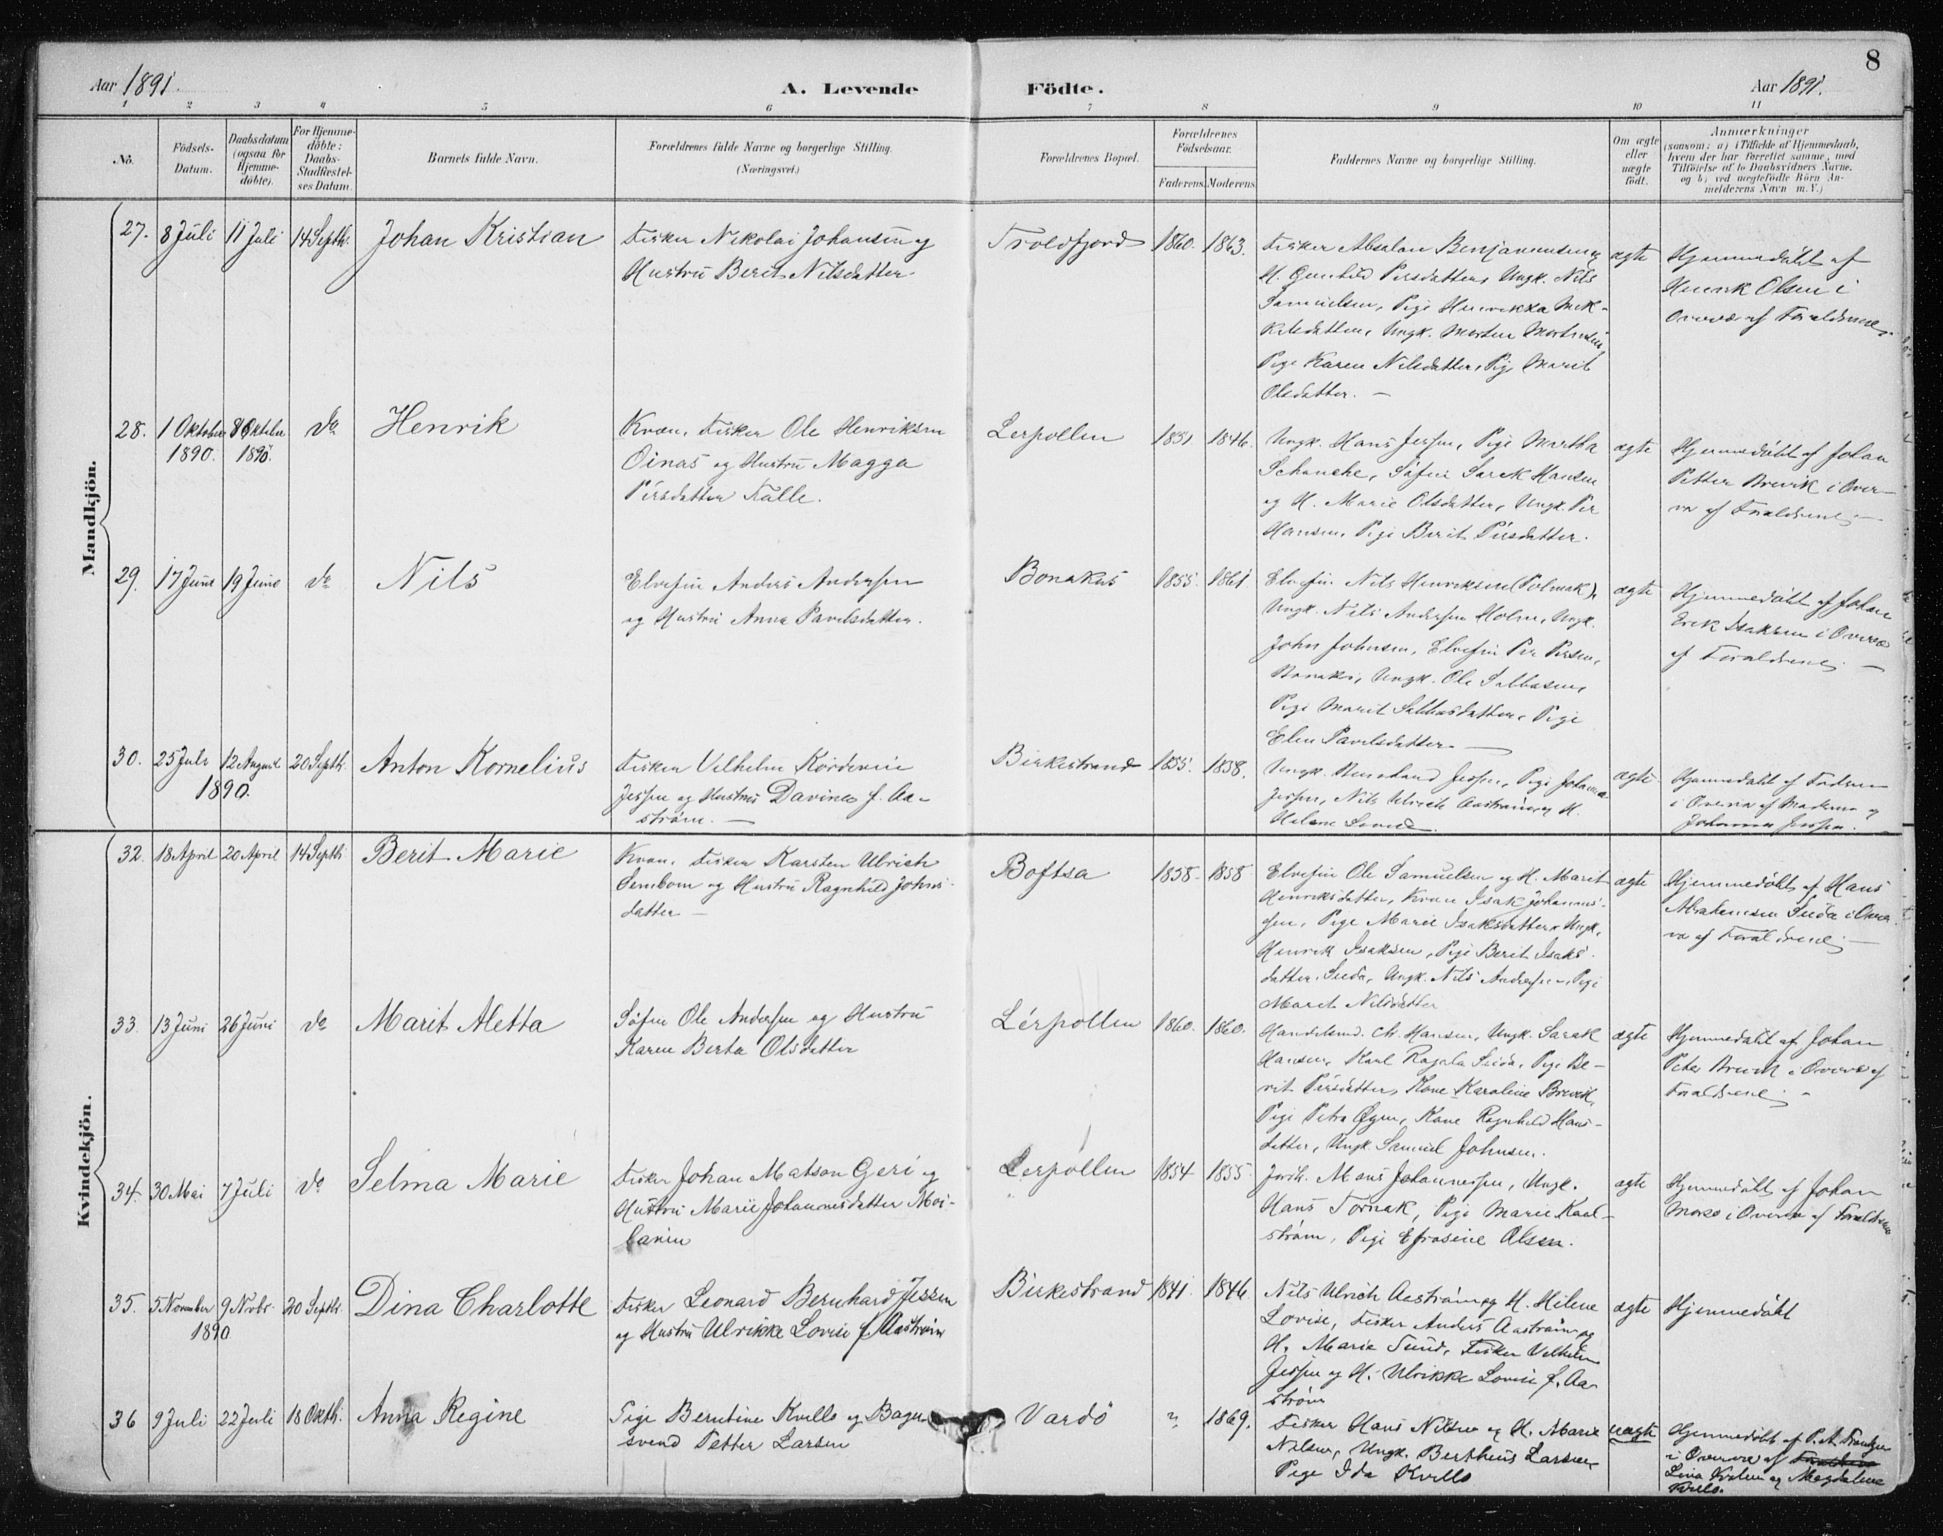 8
Aar 1891.
A. Levende Födte.
Aar 1891.
1 2 3 4 5 6 7 8 9 10 11
No.
Födsels-
Datum.
Daabsdatum
(ogsaa for
Hjemme-
døbte).
For Hjemme-
døbte:
Daabs-
Stadfæstel-
ses Datum.
Barnets fulde Navn.
Forældrenes fulde Navne og borgerlige Stilling.
(Næringsvei.)
Forældrenes Bopæl.
Forældrenes
Födselsaar.
Faderens. Moderens.
Faddernes Navne og borgerlige Stilling.
Om ægte
eller
uægte
født.
Anmærkninger
(saasom: a) i Tilfælde af Hjemmedaab,
hvem der har forrettet samme, med
Tilföielse af to Daabsvidners Navne,
og b) ved uægtefödte Börn An-
melderens Navn m. V.)
Mandkjön.
27. 8 Juli 11 Juli 14 Septb. Johan Kristian
Fisker Nikolai Johansen og
Hustru Berit Nilsdatter
Troldfjord 1860. 1863.
Fisker Absalon Benjaminsen og
H. Gunhild Persdatter, Ungk. Nils
Samuelsen, Pige Henrikka Mik-
kelsdatter, Ungk. Morten Mortensen,
Pige Karen Nilsdatter, Pige Marit
Olsdatter. —
ægte
Hjemmedøbt af
Henrik Olsen i
Overvær af Forældrene.
28. 1 Oktober 8 Oktober do Henrik
1890. 1890.
Kvæn, Fisker Ole Henriksen
Oinas og Hustru Magga
Persdatter Falle.
Lerpollen 1851. 1846.
Ungk. Hans Jessen, Pige Martha
Schanche, Søfin Sarek Hansen
og H. Marie Olsdatter, Ungk. Per
Hansen, Pige Berit Persdatter.
ægte
Hjemmedøbt af Johan
Petter Brevik i Over-
vær af Forældrene. —
29. 17 Juni 19 Juni do Nils
Elvefin Anders Andersen
og Hustru Anna Pavelsdatter.
Bonakas 1855. 1861.
Elvefin Nils Henriksen (Polmak),
Ungk. Nils Andersen Holm, Ungk.
John Johnsen, Elvefin Per Persen,
Bonakas, Ungk. Ole Sabbasen,
Pige Marit Sabbasdatter, Pige
Elen Pavelsdatter. —
ægte
Hjemmedøbt af Johan
Erik Isaksen i Overvær
af Forældrene. —
30. 25 Juli 12 August 20 Septb. Anton Kornelius
1890.
Fisker Vilhelm
Jessen og Hustru Davine f. Aa-
strøm. —
Birkestrand 1855. 1858.
Ungk. Bernhard Jessen, Pige Johanna
Jessen, Nils Ulrich Aastrøm og H.
Helene Lovise.
ægte
Hjemmedøbt af Faderen
i Overvær af Moderen og
Johanna Jessen.
Kvindekjön.
32. 18 April 20 April 14 Septb. Berit Marie
Kvæn, Fisker Karsten Ulrich
Sembom og Hustru Ragnhild Johns-
datter —
Boftsa 1858. 1858
Elvefin Ole Samuelsen og H. Marit
Henriksdatter, Kvæn Isak Johannes-
sen, Pige Marie Isaksdatter, Ungk.
Henrik Isaksen, Pige Berit Isaks-
datter Siida, Ungk. Nils Andersen, Pige
Marit Nilsdatter
ægte
Hjemmedøbt af Hans
Abrahamsen Siida i Over
vær af Forældrene. —
33. 13 Juni 26 Juni do Marit Aletta
Søfin Ole Andersen og Hustru
Karen Berta Olsdatter
Lerpollen 1860. 1860.
Handelsmd. Hansen, Ungk. Sarak
Hansen, Karl Siida, Pige Be-
rit Persdatter, Kone Karoline Brevik,
Pige Petra Øyen, Kone Ragnhild Hans-
datter, Ungk. Samuel Johnsen.
ægte
Hjemmedøbt af Johan
Peter Brevik i Overvær af
Forældrene. –
34. 30 Mai 7 Juli do Selma Marie
Fisker Johan Matson Geri og
Hustru Marie Johannesdatter Moi-
lanen
Lerpollen 1854 1855.
Jordb. Mons Johannessen, Ungk.
Hans Tornak, Pige Marie Kaal-
strøm, Pige Efrosine Olsen.
ægte
Hjemmedøbt af Johan
i Overvær af Forældrene
35. 5 November 9 Novbr. 20 Septb. Dina Charlotte
1890
Fisker Leonard Bernhard Jessen
og Hustru Ulrikke Lovise f. Aastrøm
Birkestrand 1841. 1846.
Nils Ulrich Aastrøm og H. Helene
Lovise, Fisker Anders Aastrøm og
H. Marie Sund, Fisker Vilhelm
Jessen og H. Ulrikke Lovise f. Aa-
strøm
ægte
Hjemmedøbt
36 9 Juli 22 Juli 18 Oktb. Anna Regine
Pige Berntine Kvello og Bager
svend Petter Larsen
Vardö " 1869.
Fisker Hans Nilsen og H. Marie
Nilsen, Ungk. Bertheus Larsen
Pige Ida Kvello
uægte
Hjemmedøbt af P. A.
i Overvær af Forældrene
Lina og Magdalene
Kvello.